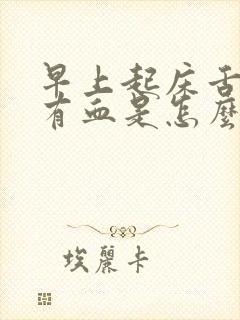 早上起床舌
有血是怎麼
埃麗卡